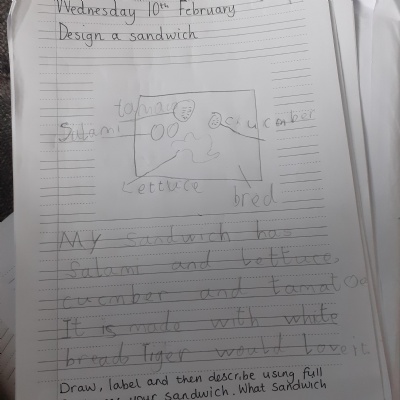 Wednesday 10th February
Design a sandwich
tomato
Salami
cucember
Lettuce
bred
My Sandwich has
Salami and Lettuce,
cucmber and tamatoo
It is made with white
bread. Tiger would Love it
Draw, label and then describe using full
your sandwich. What sandwich